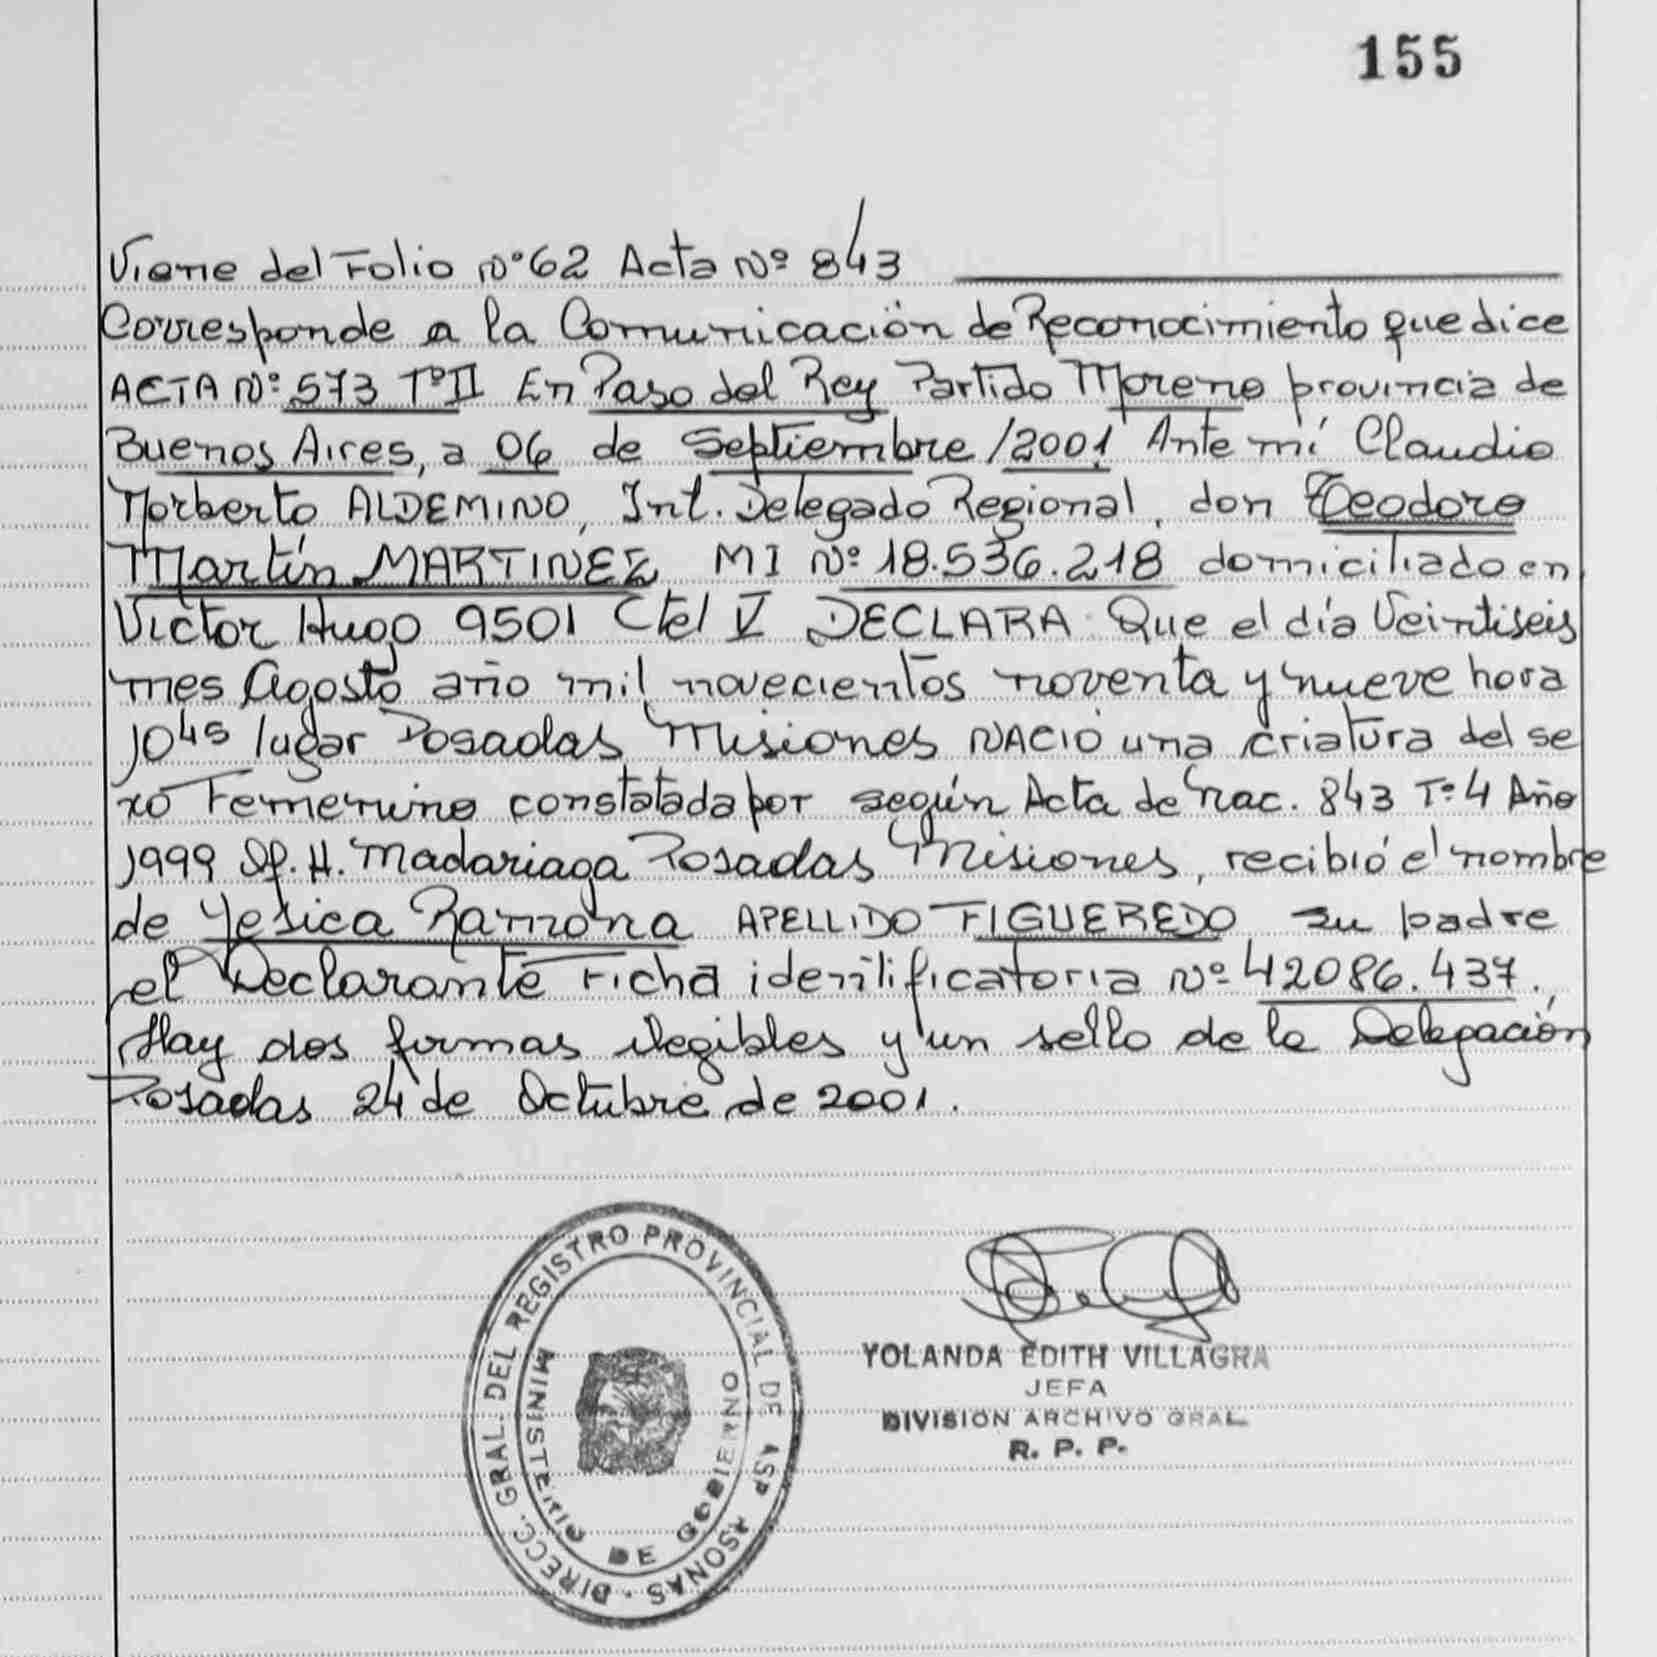 155
Viene del Folio Nº 62 Acta Nº 843
Corresponde a la Comunicación de Reconocimiento que dice
ACTA Nº 573 TºII En Paso del Rey Partido Moreno provincia de
Buenos Aires, a 06 de Septiembre/2001 Ante mí Claudio
Norberto ALDEMINO, Int. Delegado Regional, don Teodoro
Martín MARTINEZ MI Nº 18.536.218 domiciliado en
Victor Hugo 9501 Ctel V DECLARA: Que el día Veintiseis
mes Agosto año mil novecientos noventa y nueve hora
10⁴⁵ lugar Posadas Misiones NACIÓ una criatura del se
xo Femenino constatada por según Acta de Nac. 843 Tº4 Año
1999 Of. H. Madariaga Posadas Misiones, recibió el nombre
de Yesica Ramona APELLIDO FIGUEREDO su padre
el Declarante Ficha identificatoria Nº 42086.437.
Hay dos firmas ilegibles y un sello de la Delegación
Posadas 24 de Octubre de 2001.
DIRECC. GRAL. DEL REGISTRO PROVINCIAL DE
MINISTERIO DE GOBIERNO
YOLANDA EDITH VILLAGRA
JEFA
DIVISION ARCHIVO GRAL.
R. P. P.